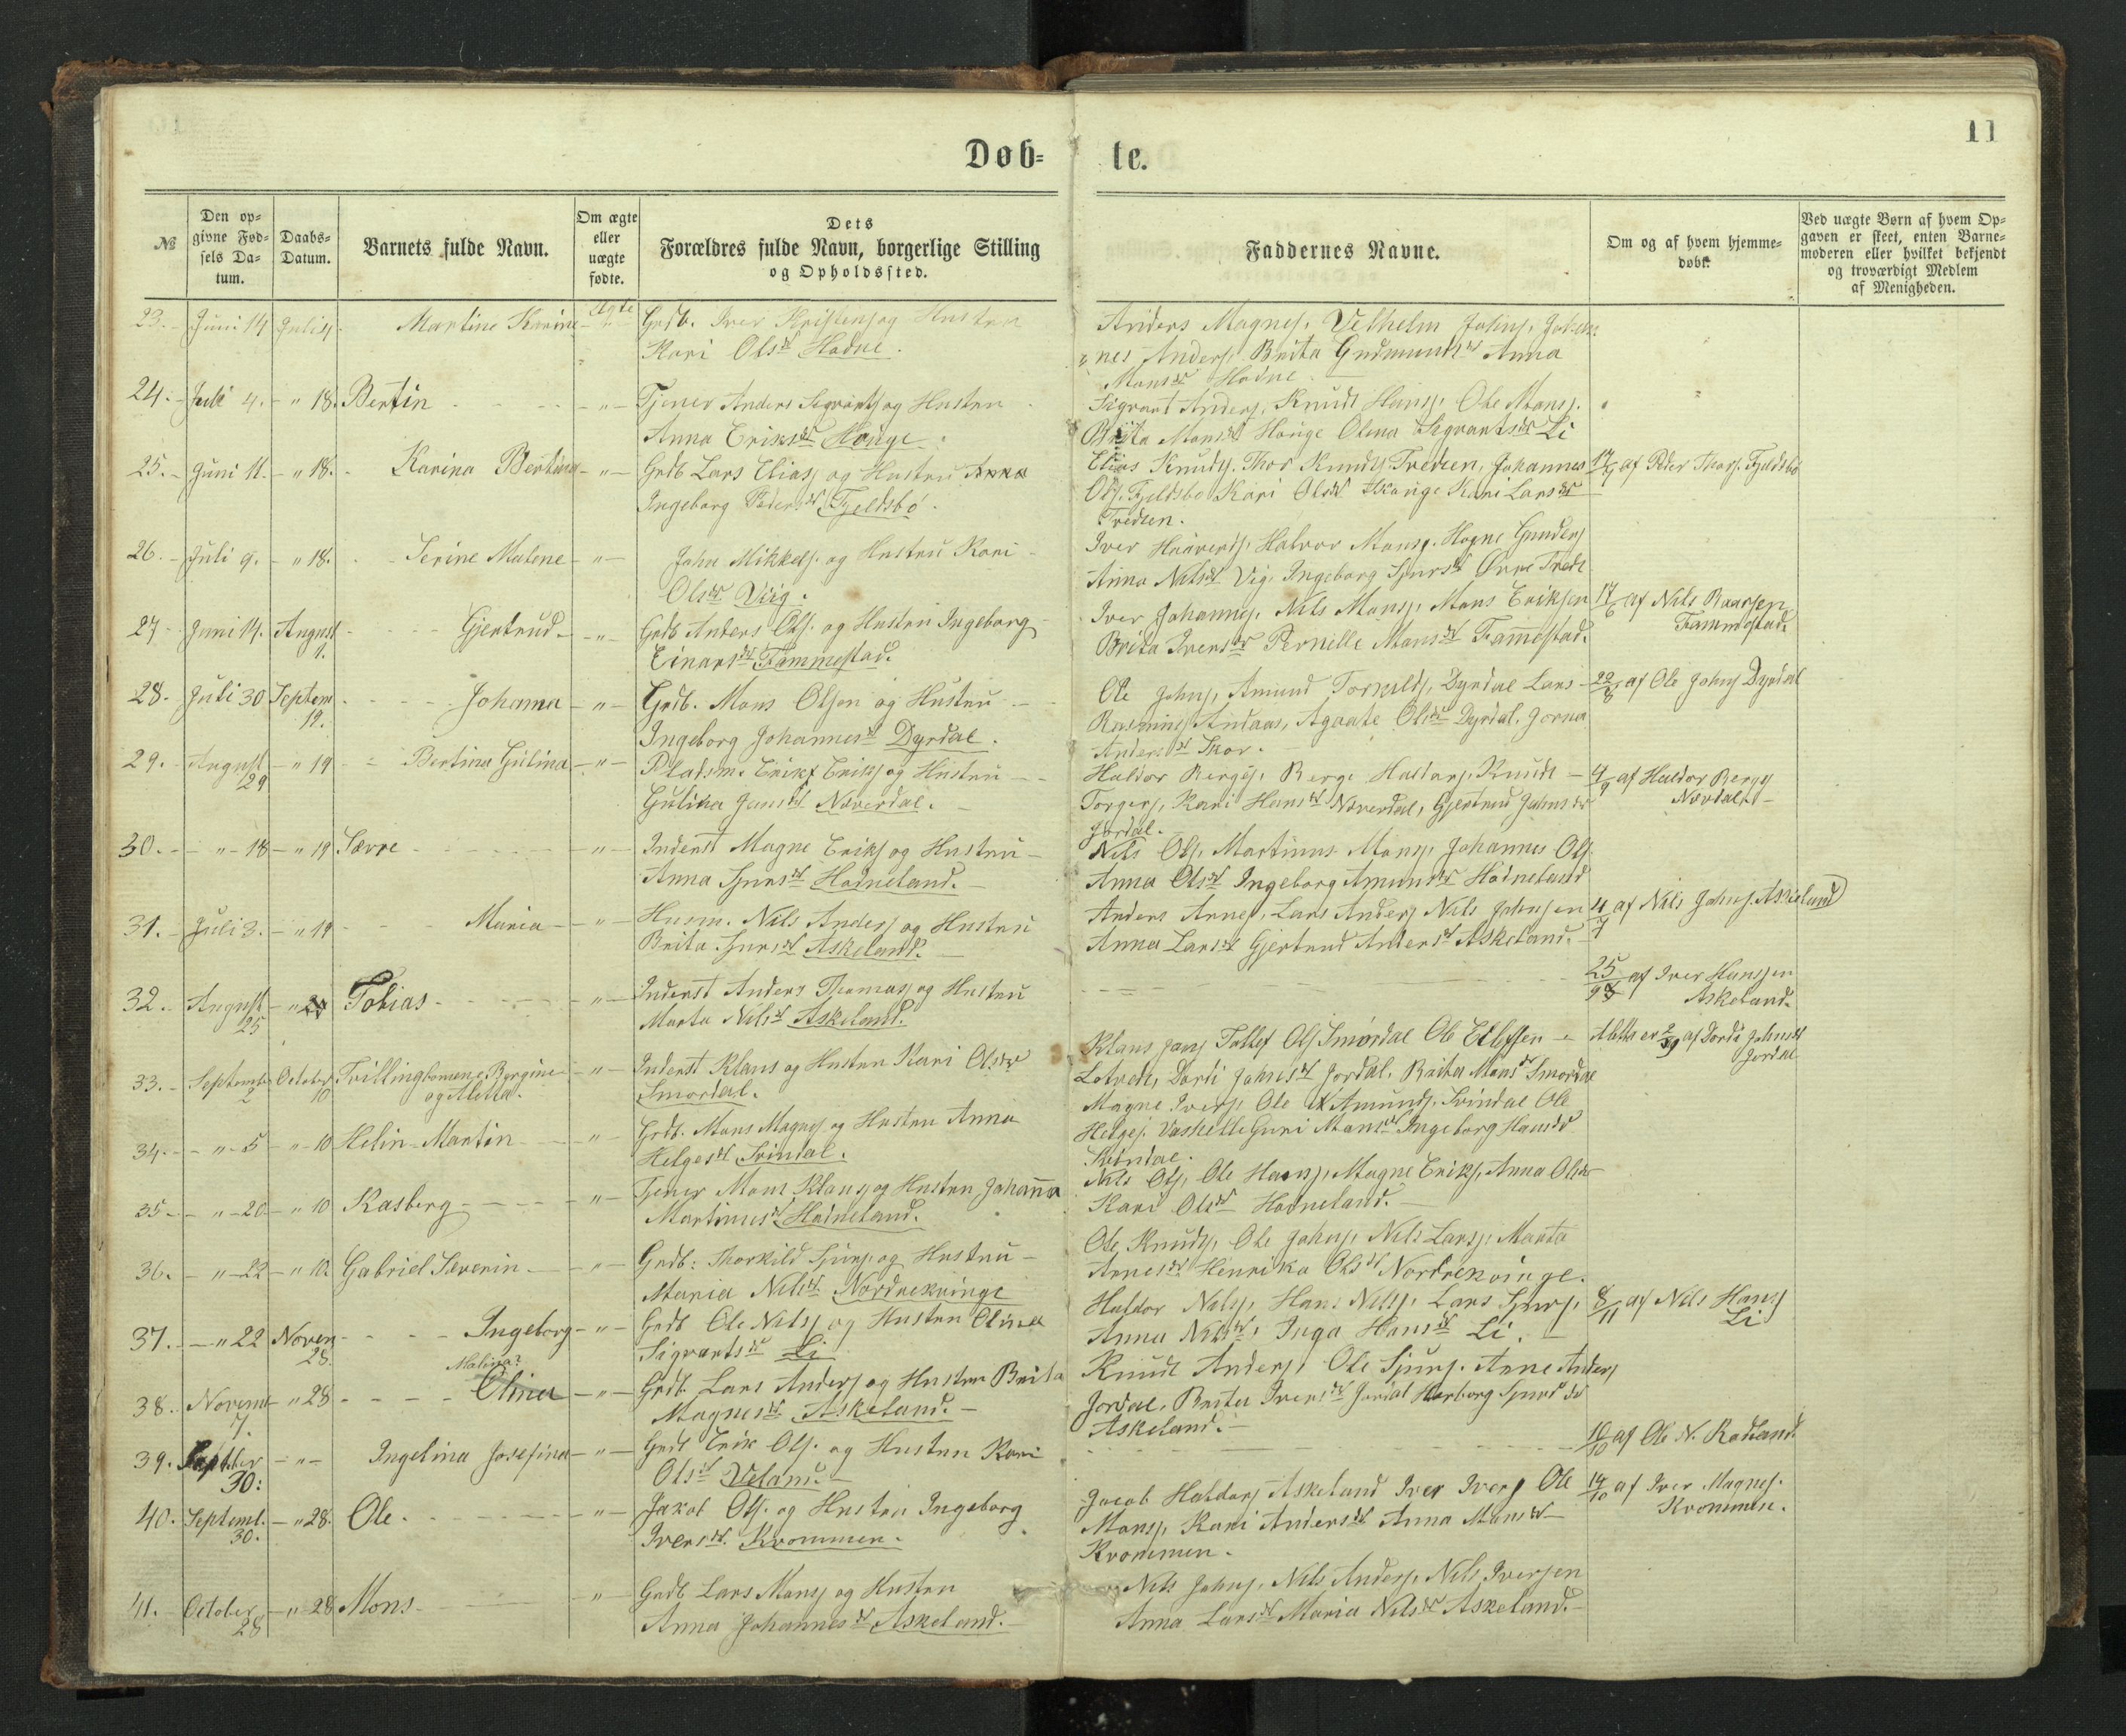 11
Døb= te.
№
Den op=
givne Fød=
sels Da=
tum.
Daabs=
Datum.
Barnets fulde Navn.
Om ægte
eller
uægte
fødte.
Dets
Forældres fulde Navn, borgerlige Stilling
og Opholdssted.
Faddernes Navne.
Om og af hvem hjemme=
døbt.
Ved uægte Børn af hvem Op=
gaven er skeet, enten Barne=
moderen eller hvilket bekjendt
og troværdigt Medlem
af Menigheden.
23. Juni 14 Juli 4 Martine Karine Ægte Grdb. Iver Kristens og Hustru
Kari Olsdr Hodne.
Anders Magnes. Velhelm Johns. Johan=
nes Anders. Brita Gudmundsdr Anna
Monsdr Hodne
24. Juli 4. " 18. Bertin " Tjener Anders Sigvarts og Hustru
Anna Eriksdr Hauge.
Sigvart Anders. Knudt Hans. Ole Mons.
Brita Monsdr Hauge Olena Sigvartsdr Li
25. Juni 11. " 18. Karina Bertina " Grdb Lars Elias og Hustru Anna
Ingeborg Pedersdr Fjeldsbø.
Elias Knuds. Thor Knuds. Tredien, Johannes
Ols. Fjeldsbø Kari Olsdr Kari Larsdr
Tredien.
af Peder Thors. Fjeldsbø
26. Juli 9. " 18. Serine Malene " John Mikkels. og Hustru Kari
Olsdr Viig.
Iver Haavards. Halvor Mons. Hogne Gunders
Anna Nilsdr Vig. Ingeborg Sjursdr
27 Juni 14. August 1. Gjertrud " Grdb Anders Ols. og Hustru Ingeborg
Einarsdr Fammestad.
Iver Johannes. Nils Mons. Mons Eriksen
Brita Iversdr Pernille Monsdr Fammestad.
17/6 af Nils Baarsen
Fammestad.
28. Juli 30 Septem 19. Johanna " Grdb. Mons Olsen og Hustru
Ingeborg Johannesdr Dyrdal.
Ole Johns. Amund Torkilds. Dyrdal Lars
Andaas, Agaate Olsdr Dyrdal.
Andersdr Skor.
22/8 af Ole Johns Dyrdal
29. August 29 " 19 Bertina Gulina " Pladsm. Erik Eriks og Hustru
Gulina Jansdr Nœverdal.
Haldor Berges. Berge Haldors. Knudt
Torgers. Kari Hansdr Nœverdal, Gjertrud Johnsdr
Jordal.
4/9 af Haldor Berges
Nœvdal
30. " 18 " 19 Særre " Inderst Magne Eriks og Hustru
Anna Sjursdr Hodneland.
Nils Ols. Martinus Mons. Johannes Ols.
Anna Olsdr Ingeborg Amundsdr Hodneland
31. Juli 3. " 19 Maria " Husm. Nils Anders og Hustru
Brita Sjursdr Askeland.
Anders Arnes. Lars Anders Nils Johnsen
Anna Larsdr Gjertrud Andersdr Askeland.
4/7 af Nils Johns. Askeland
32. August 25 " Tobias " Inderst Anders Thomas og Hustru
Marta Nilsdr Askeland.
25/9 af Iver Hanssen
Askeland.
33. Septembr 2 October 10 Trillingbørnene Bergine
og Aletta. " Inderst Klaus og Hustru Kari Olsdr
Smørdal.
Klaus Jans Tollef Ols Smørdal Ole Ellefsen
Lotved, Dordi Johnsdr Jordal. Brita Monsdr Smørdal
Aletta er 2/9 af Dordi Johnsdr
Jordal
34. " 5 " 10 Helin Martin " Grdb. Mons Magnes og Hustru Anna
Helgesdr Svindal.
Magne Ivers. Ole Amunds. Svindal Ole
Helges. Guri Monsdr Ingeborg Hansdr
Svindal.
35. " 20 " 10 Kasberg " Tjener Mons Klaus og Hustru Johanna
Martinusdr Hodneland.
Nils Ols. Ole Hans. Magne Eriks. Anna Olsdr
Kari Olsdr Hodneland.
36. " 22 " 10. Gabriel Severin " Grdb: Thorkild Sjurs. og Hustru
Maria Nilsdr Nordrekvinge
Ole Knuds. Ole Johns. Nils Lars. Marta
Arnesdr Henrika Olsdr Nordrekvinge.
37. " 22 Novem 28 Ingeborg " Grdb Ole Nils og Hustru Olina
Sigvartsdr Li
Haldor Nils. Hans Nils. Lars Sjurs.
Anna Nilsdr. Inga Hansdr Li.
8/11 af Nils Hans
Li
38. Novem 7. " 28 Malina? Olina " Grdb. Lars Anders og Hustru Brita
Magnesdr Askeland.
Knudt Anders. Ole Sjurs. Anne Anders
Jordal, Brita Iversdr Jordal Herborg Sjursdr
Askeland.
39. Septber 30: " Ingelina Josefina " Grdb Erik Ols. og Hustru Kari
Olsdr Veland.
10/10 af Ole N. Rødland
40. Septemb. 30. " 28. Ole. " Jakob Ols. og Hustru Ingeborg
Iversdr. Krommen.
Jacob Haldors Askeland Iver Ivers Ole
Mons. Kari Andersdr Anna Monsdr
Krommen.
14/10 af Iver Magnes.
Krommen.
41. October 28 " 28 Mons " Grdb Lars Mons og Hustru
Anna Johannesdr Askeland.
Nils Johns. Nils Anders. Nils Iversen
Anna Larsdr Maria Nilsdr Askeland.